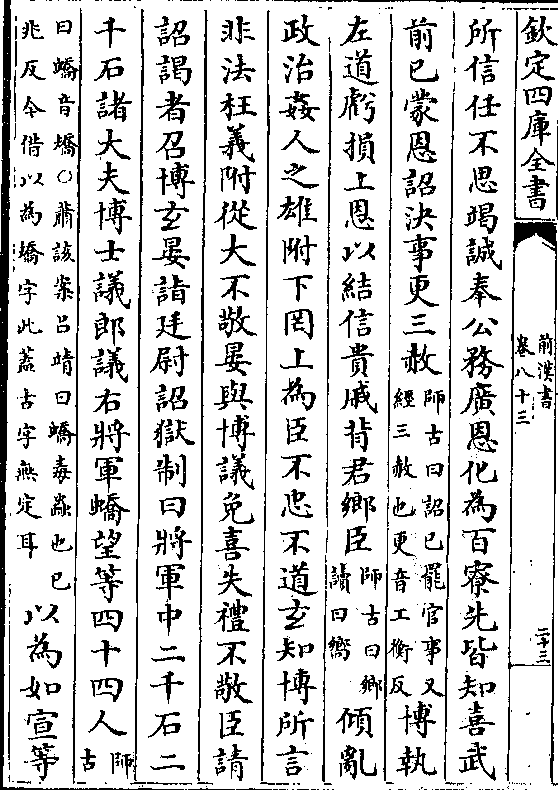 欽定四庫全書
前漢書
卷八十三
二十三
所信任不思竭誠奉公務廣恩化為百寮先皆知喜武
前已蒙恩詔決事更三赦師古曰詔已罷官事又經三赦也更音工衡反博執
左道虧損上恩以結信貴戚背君鄉臣師古曰鄉讀曰嚮傾亂
政治姦人之雄附下罔上為臣不忠不道玄知博所言
非法枉義附從大不敬晏與博議免喜失禮不敬臣請
詔謁者召博玄晏詣廷尉詔獄制曰將軍中二千石二
千石諸大夫博士議郎議右將軍蟜望等四十四人師古
曰蟜音矯○蕭該案呂靖曰蟜毒蟲也已兆反今借以為矯字此蓋古字無定耳以為如宣等